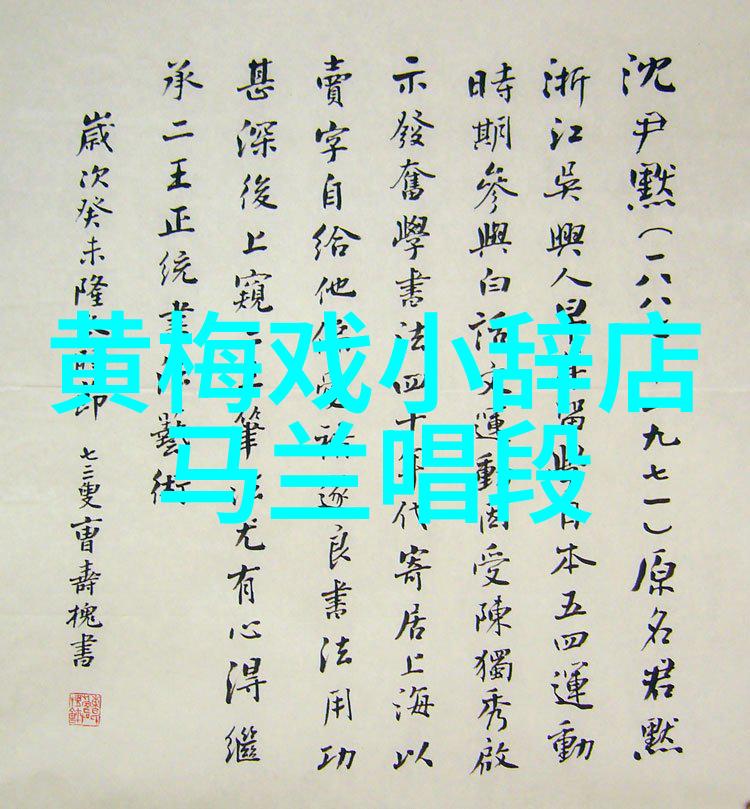 沈尹默（一八八一九七一）原名君默
浙江吳興人早留學日本五四運動
時期參與白話文運動因受陳獨秀啟
示發奮學書法四十年代寄居上海以
賣字自給他受遂良書法用功
甚深後上窺筆法尤有心得繼
承二王正統書法藝術
歲次癸未隆 七三叟曹壽槐書
黄梅戏小辞店
马兰唱段